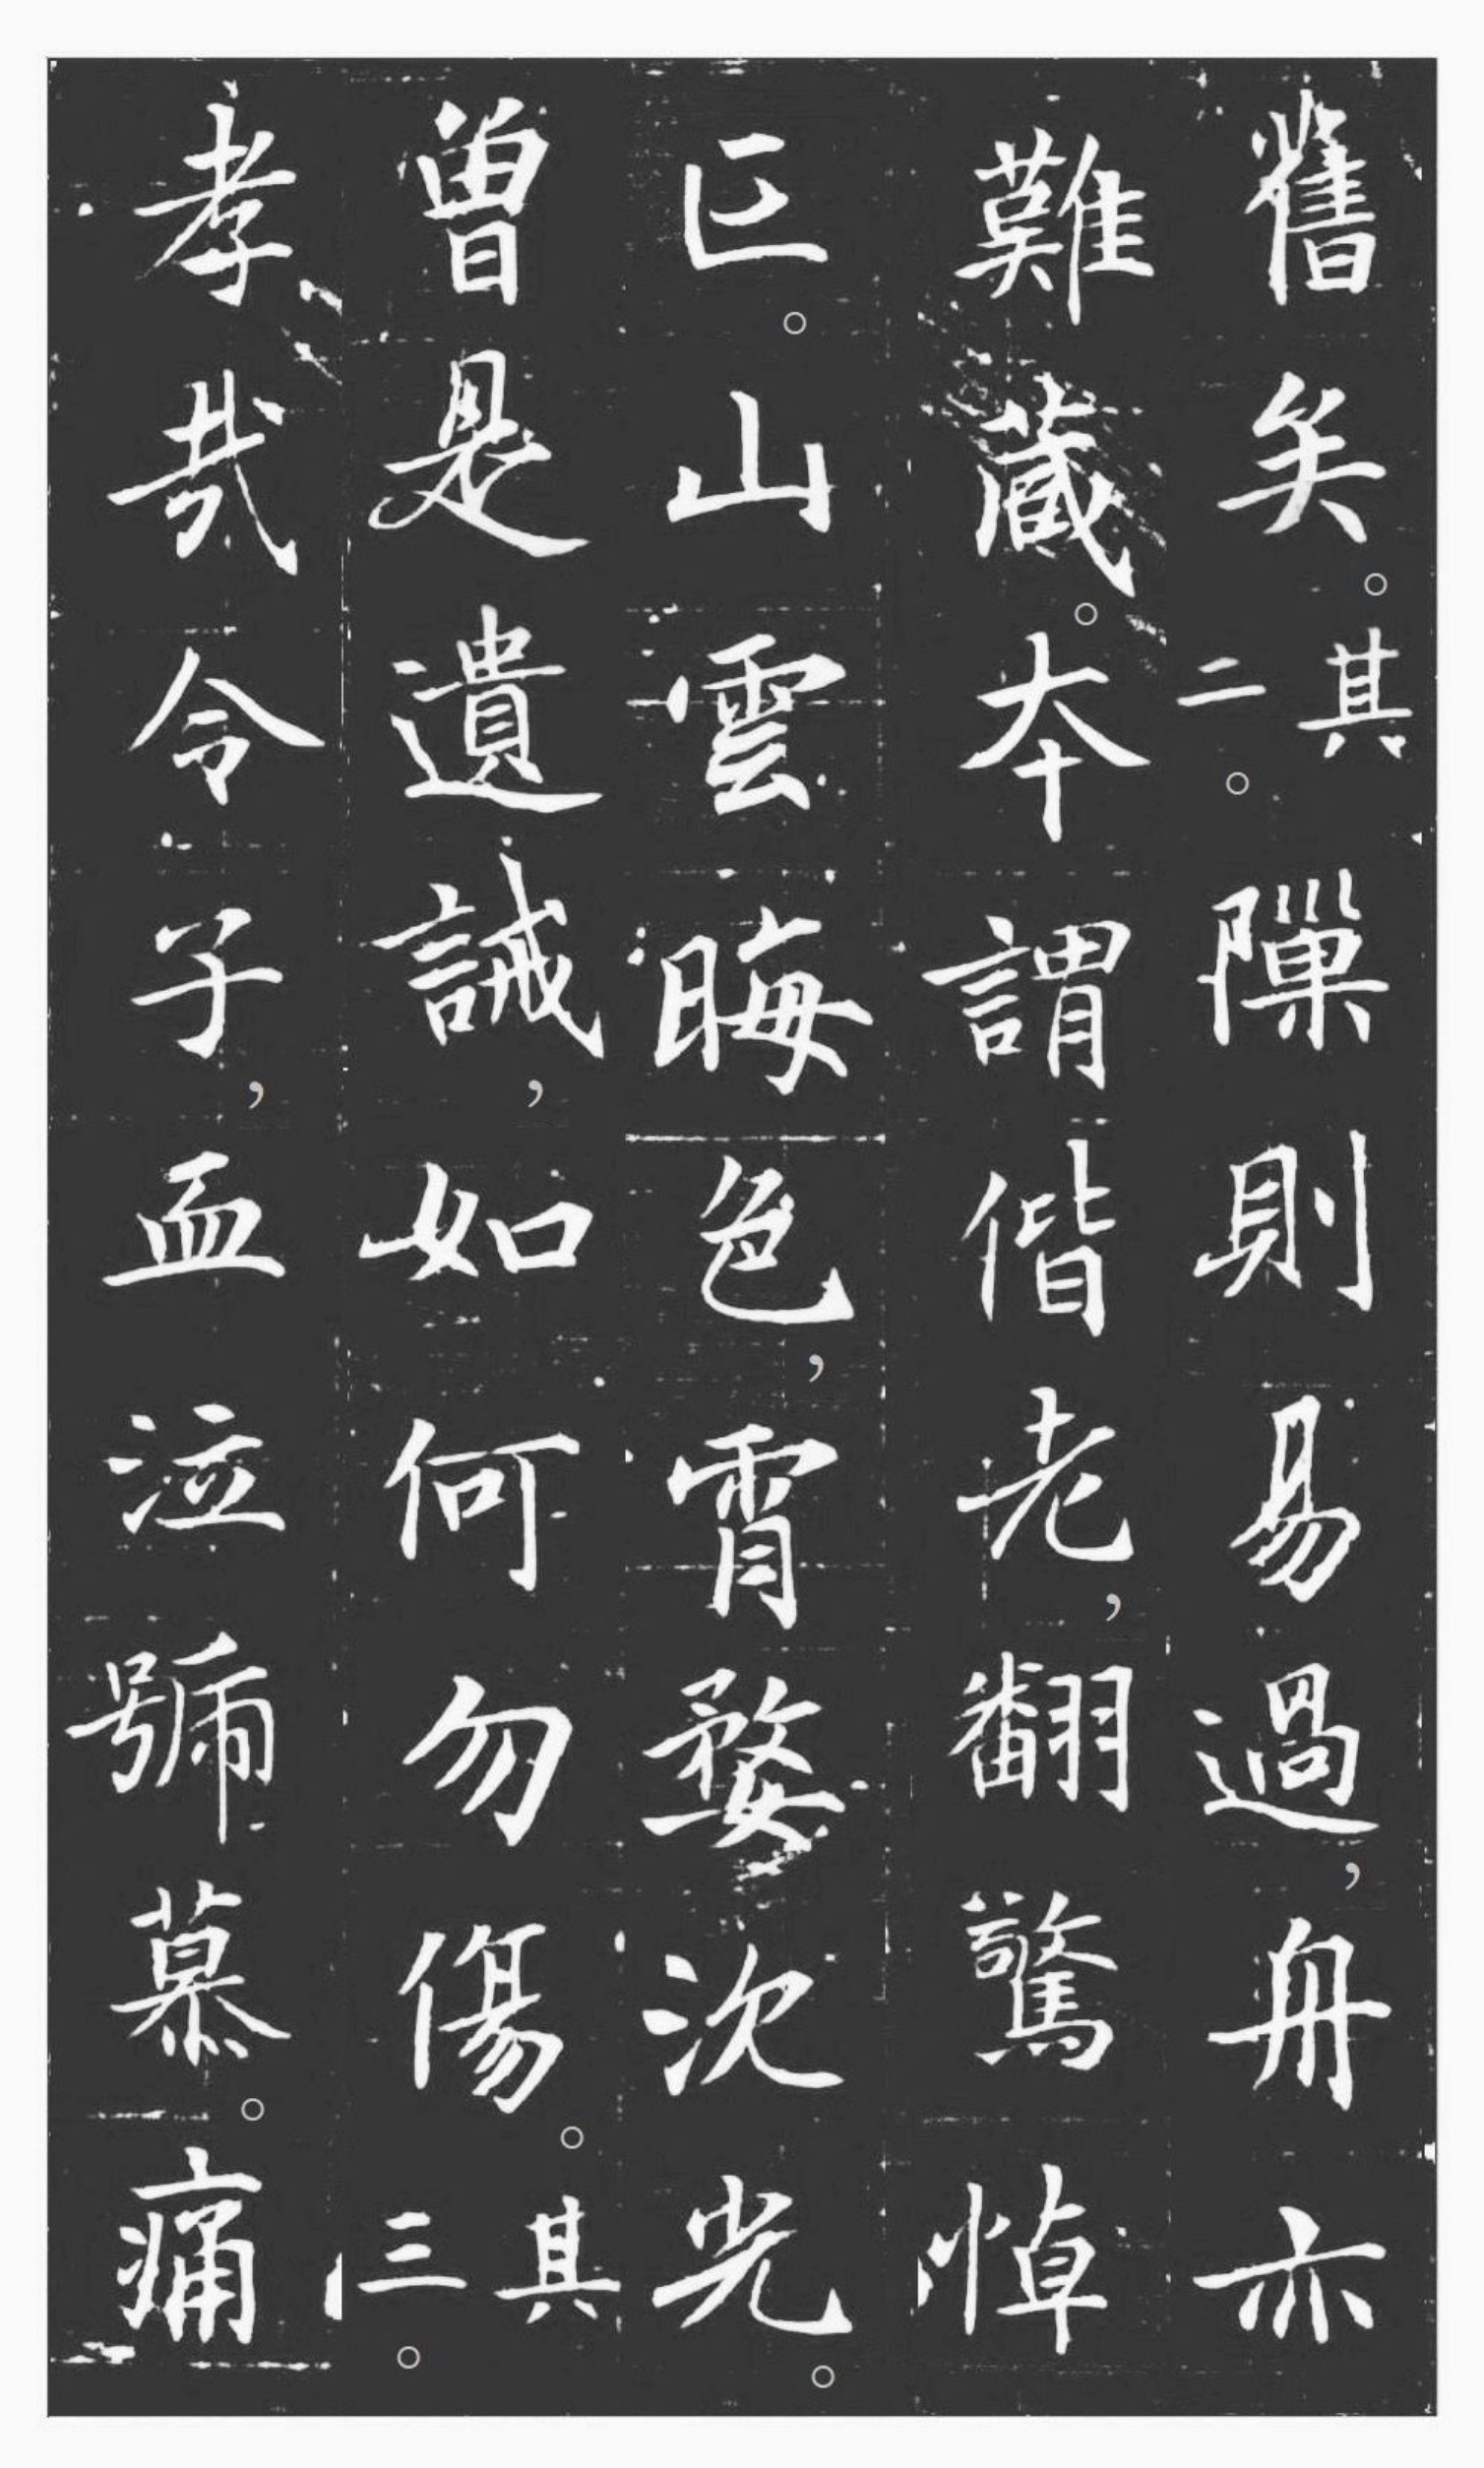 舊矣。其二。隟則易過，舟亦
難藏。本謂偕老，翻驚悼
亡。山雲晦色，霄婺沈光。
曾是遺誡，如何勿傷。其三。
孝哉令子，孟泣號慕。痛